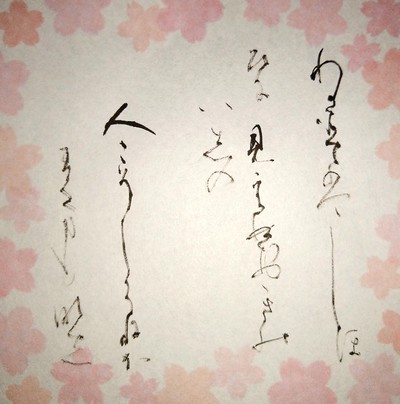 わかそてはしほ
ひに見えぬおきの
いしの
人こそしらねか
わくまもなし